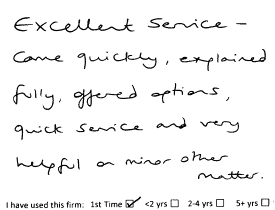 Excellent Service -
Came quickly, explained
fully, offered options,
quick service and very
helpful on minor other
matter.
I have used this firm: 1st Time ☑ <2 yrs ☐ 2-4 yrs ☐ 5+ yrs ☐